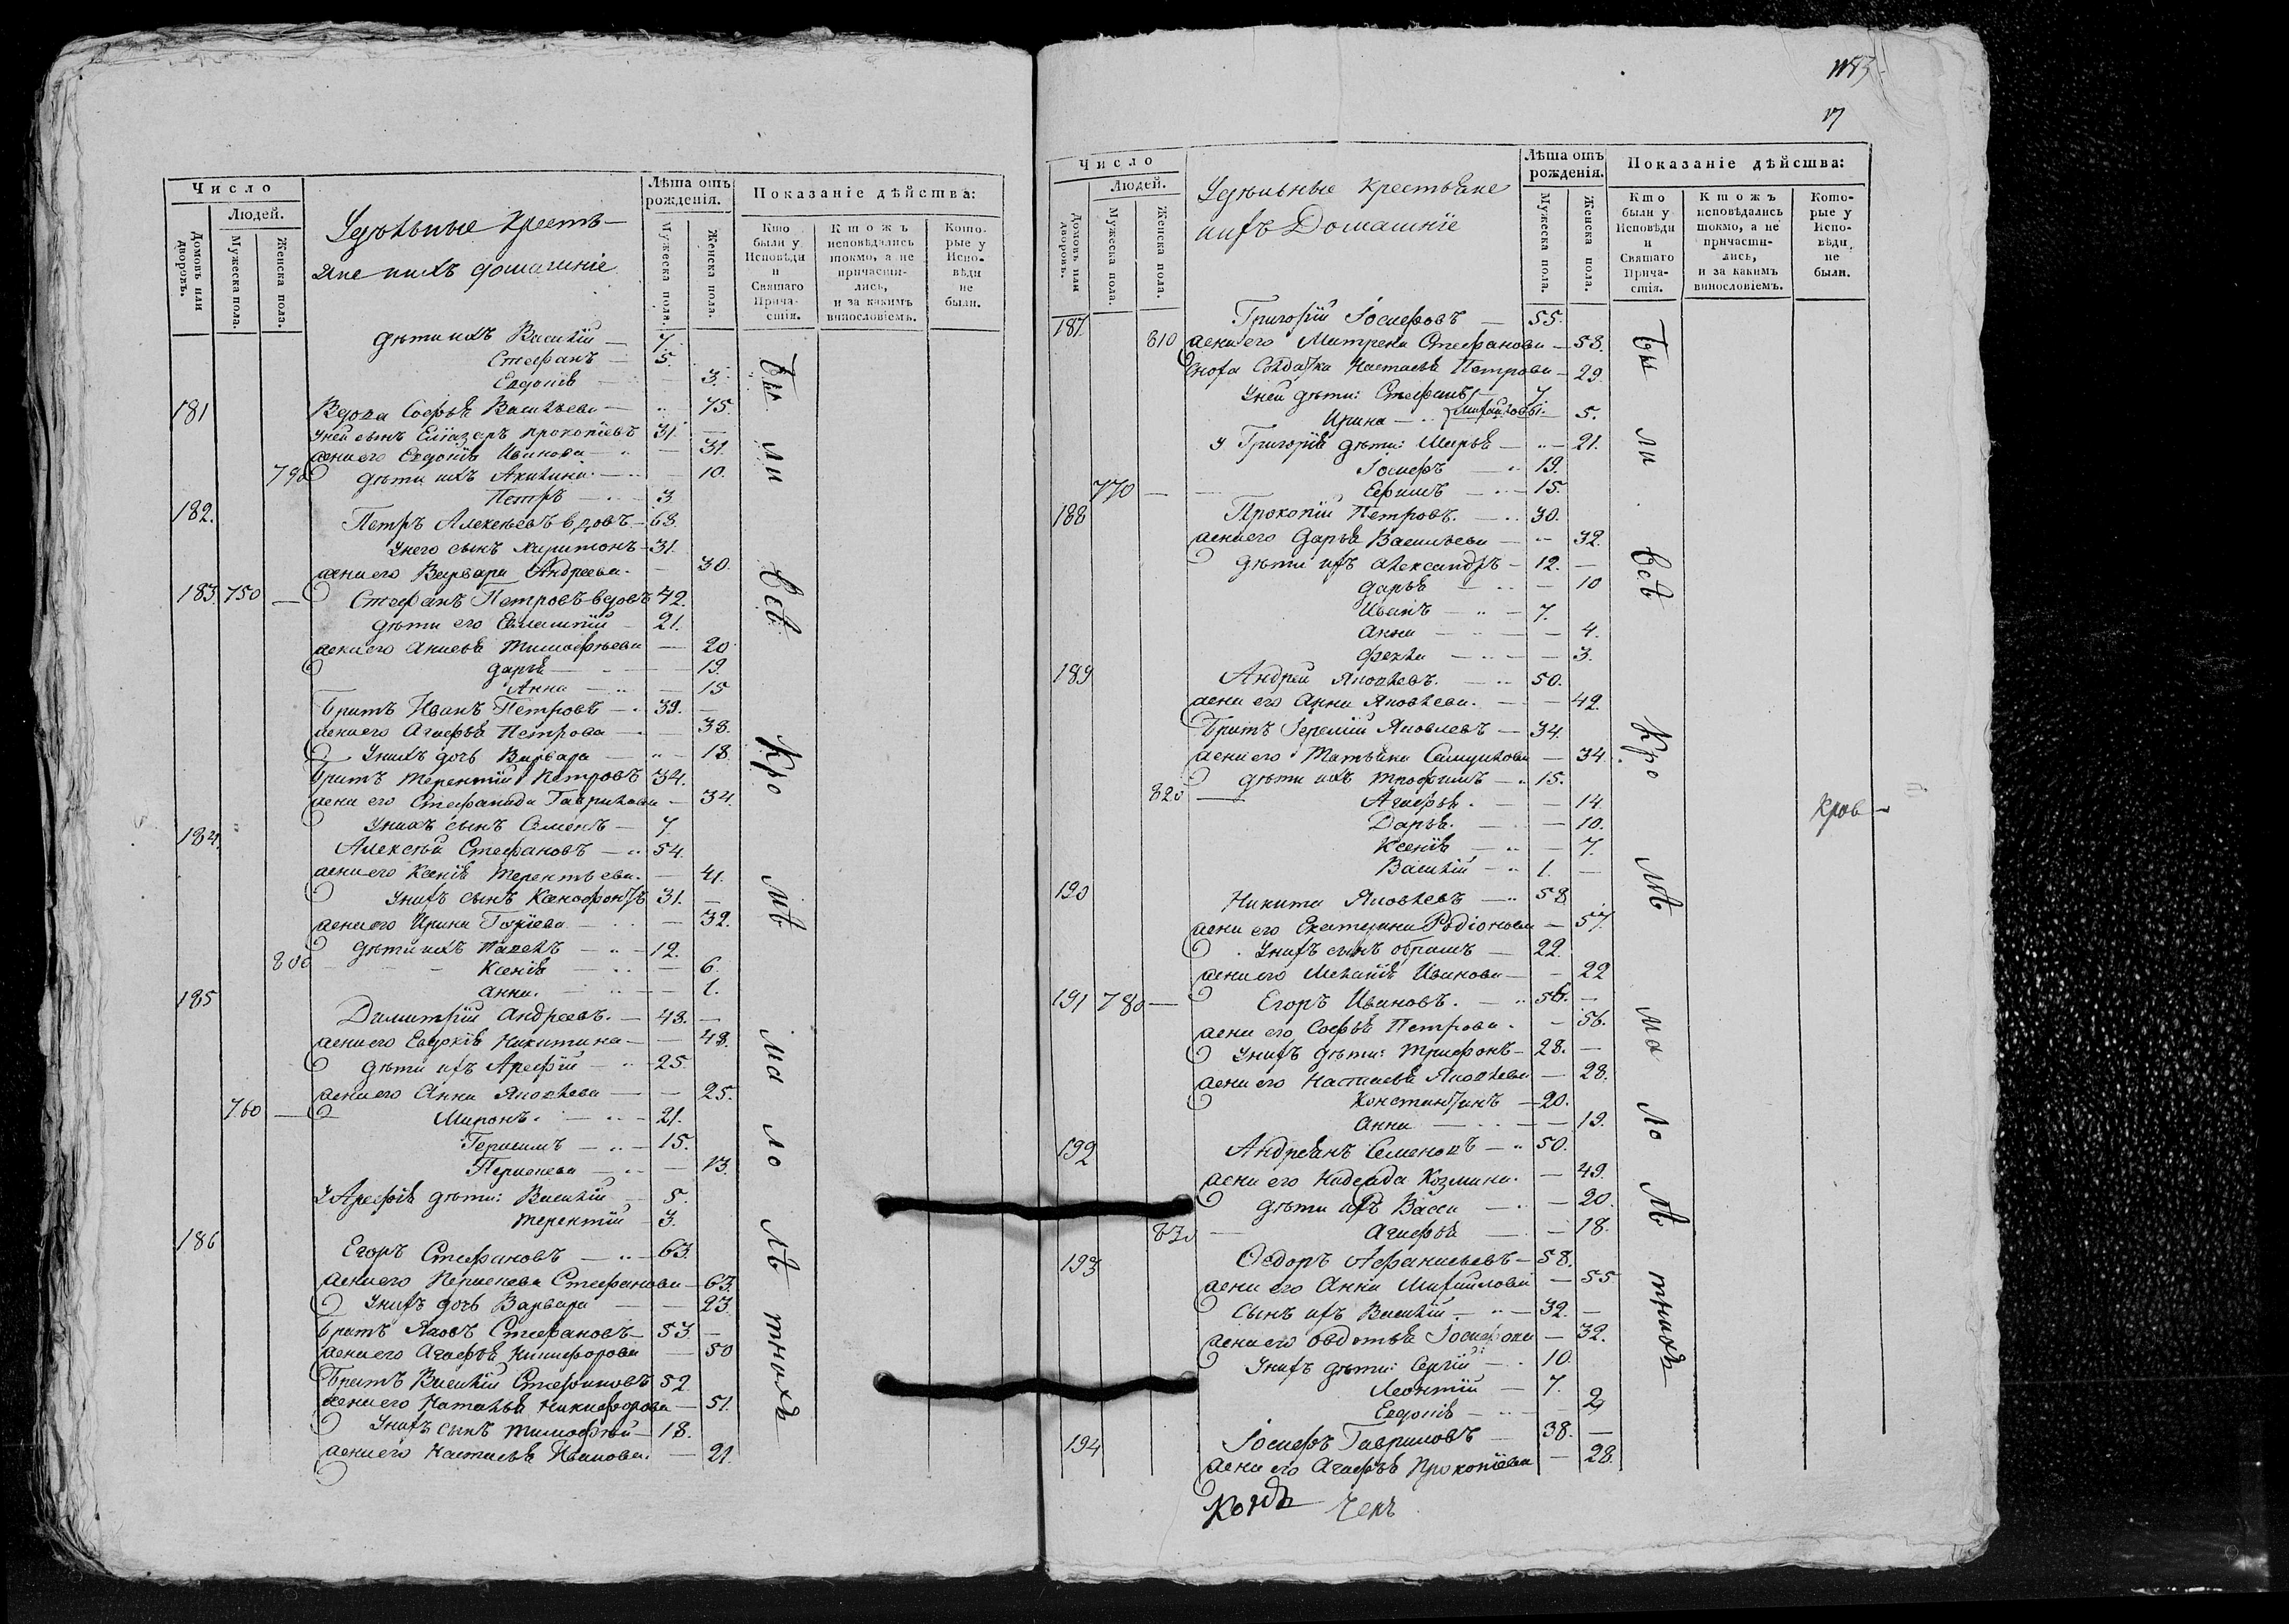 Число
Людей.
Домовъ или дворовъ.
Мужеска пола.
Женска пола.
Удѣльные кресть-
яне и ихъ домашніе
Лѣта отъ рожденія.
Мужеска пола.
Женска пола.
Показаніе дѣйства:
Кто были у Исповѣди и Святаго Прича-стія.
Кто жъ исповѣдались токмо, а не причасти-лись, и за какимъ винословіемъ.
Кото-рые у Испо-вѣди не были.
дѣти ихъ Василій — 7.
Стефанъ — 5.
Евдокія — 3.
181 Вдова Софья Васильева — 75.
У ней сынъ Елиазаръ Прокопіевъ 31. —
жена его Евдокія Иванова — 31.
790 дѣти ихъ Акилина — 10.
Петръ — 3
182. Петръ Алексѣевъ вдовъ — 63.
У него сынъ Харитонъ — 31.
жена его Варвара Андреева. — 30.
183. 750 — Стефанъ Петровъ вдовъ 42.
дѣти его Евлампій — 21.
жена его Анисья Тимофѣева — 20
Дарья — 19.
Анна — 15
братъ Иванъ Петровъ — 39. —
жена его Агафья Петрова — 38.
У нихъ дочь Варвара — 18.
братъ Терентій Петровъ 34.
жена его Стефанида Гаврилова — 34.
У нихъ сынъ Семенъ — 7
184. Алексѣй Стефановъ — 54.
жена его Ксенія Терентьева. — 41.
У нихъ сынъ Ксенофонтъ 31. —
жена его Ирина Гордіева — 32.
дѣти ихъ Павелъ — 12.
800 — Ксенія — 6.
Анна. — 1.
185 Димитрій Андреевъ. — 48. —
жена его Евдокія Никитина — 48.
дѣти ихъ Арефій — 25.
жена его Анна Яковлева — 25.
760 — Миронъ. — 21.
Герасимъ — 15.
Параскева — 13.
У Арефія дѣти: Василій — 5.
Терентій — 3.
186 Егоръ Стефановъ — 63
жена его Параскева Стефанова — 63.
У нихъ дочь Варвара — 23
братъ Яковъ Стефановъ — 53. —
жена его Агафья Никифорова — 50
братъ Василій Стефановъ 52
жена его Наталья Никифорова — 51.
У нихъ сынъ Тимофей — 18.
жена его Настасья Иванова. — 21.
Бы ли всѣ кро мѣ ма ло лѣ тныхъ
17
Число
Людей.
Домовъ или дворовъ.
Мужеска пола.
Женска пола.
Удѣльные крестьяне
и ихъ Домашніе
Лѣта отъ рожденія.
Мужеска пола.
Женска пола.
Показаніе дѣйства:
Кто были у Исповѣди и Святаго Прича-стія.
Кто жъ исповѣдались токмо, а не причасти-лись, и за какимъ винословіемъ.
Кото-рые у Испо-вѣди не были.
187. Григорій Іосифовъ — 55.
810 жена его Матрена Стефанова — 53.
Сноха Солдатка Настасья Петрова — 29.
У ней дѣти: Стефанъ 7.
Ирина — Михайловы — 5.
У Григорія дѣти: Марья — 21.
Іосифъ — 19.
770 — Ефимъ — 15.
188 Прокопій Петровъ. — 30.
жена его Дарья Васильева — 32.
дѣти ихъ Александръ — 12. —
Дарья — 10
Иванъ — 7.
Анна — 4.
Фекла — 3.
189 Андрей Яковлевъ. — 50.
жена его Анна Яковлева. — 42.
братъ Іеремій Яковлевъ — 34
жена его Татьяна Самуилова — 34.
дѣти ихъ Трофимъ — 15.
820 — Агафья. — 14.
Дарья. — 10.
Ксенія — 7.
Василій — 1. —
190 Никита Яковлевъ — 58
жена его Екатерина Родіонова — 57.
У нихъ сынъ Абрамъ — 22.
жена его Меланія Иванова — 22
191 780 — Егоръ Ивановъ. — 56. —
жена его Софья Петрова. — 56.
У нихъ дѣти: Трифонъ — 28. —
жена его Настасья Яковлева — 28.
Константинъ — 20.
Анна — 19.
192 Андреянъ Семеновъ — 50.
жена его Надежда Козмина. — 49.
дѣти ихъ Васса — 20.
830 — Агафья — 18.
193 Ѳедоръ Афанасьевъ — 58.
жена его Анна Михайлова — 55
Сынъ ихъ Василій. — 32. —
жена его Овдотья Іосифова — 32.
У нихъ дѣти: Сергій — 10.
Леонтій — 7.
Евдокія — 2
194 Іосифъ Гавриловъ — 38. —
жена его Агафья Прокопіева — 28.
Бы ли всѣ Кро мѣ ма ло лѣ тныхъ